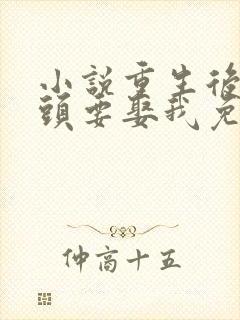 小說重生後
頭要娶我免
仲高十五